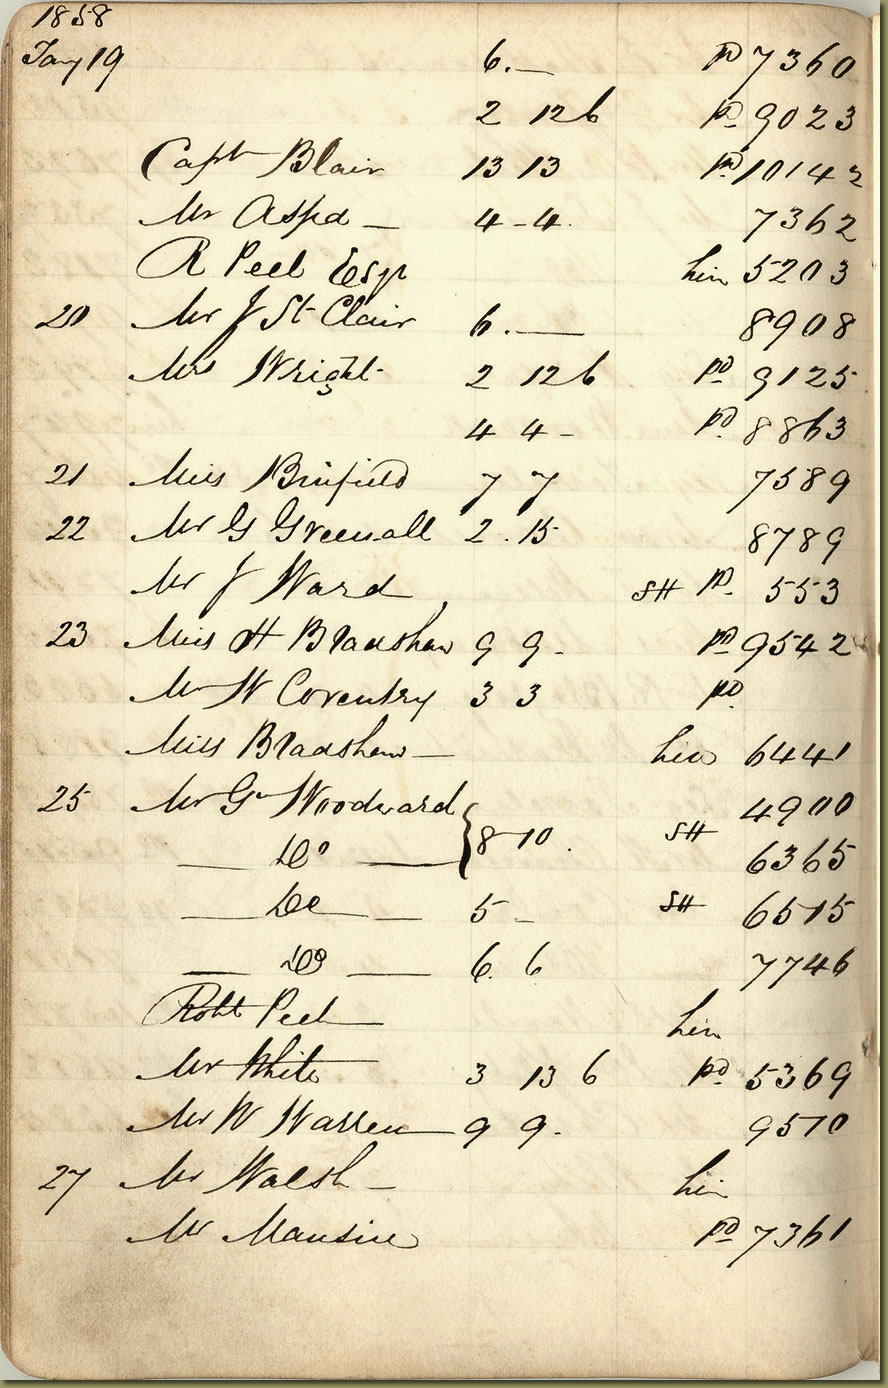 1858
Jany 19 6. — pd 7360
2 12 6 pd 9023
Capt Blair 13 13 pd 10142
Mr Aspd — 4 - 4. 7362
R Peel Esqr hire 5203
20 Mr J St Clair 6. — 8908
Mrs Wright 2 12 6 pd 9125
4 4 - pd 8863
21 Miss Binfield 7 7 7589
22 Mr G Greenall 2. 15 8789
Mr J Ward SH pd 553
23 Miss H Bradshaw 9 9 - pd 9542
Mr W Coventry 3 3 pd
Miss Bradshaw — hire 6441
25 Mr G Woodward 4900
— Do — { 8 10 . SH 6365
— Do — 5 - SH 6515
— Do — 6. 6 7746
Robt Peel — hire
Mr White 3 13 6 pd 5369
Mr W Warren — 9 9. 9510
27 Mr Walsh — hire
Mr Mausire pd 7361